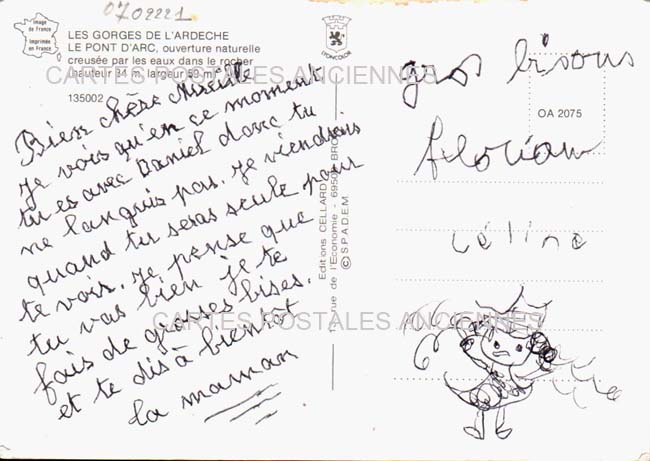 0702221
Image
de France
Imprimée
en France
LES GORGES DE L'ARDECHE
LE PONT D'ARC, ouverture naturelle
creusée par les eaux dans le rocher
(hauteur 34 m, largeur 59 m)
135002
CARTES POSTALES ANCIENNES
Bien chère Mireille
Je vois qu'en ce moment
tu es avec Daniel donc tu
ne languis pas. Je viendrais
quand tu seras seule pour
te vois. Je pense que
tu vas bien je te
fais de grosses bises.
et te dis à bientôt
la maman
LYONCOLOR
Editions CELLARD
rue de l'Economie - 69500 BRON
© S.P.A.D.E.M.
gros bisous
florian
céline
OA 2075
CARTES POSTALES ANCIENNES